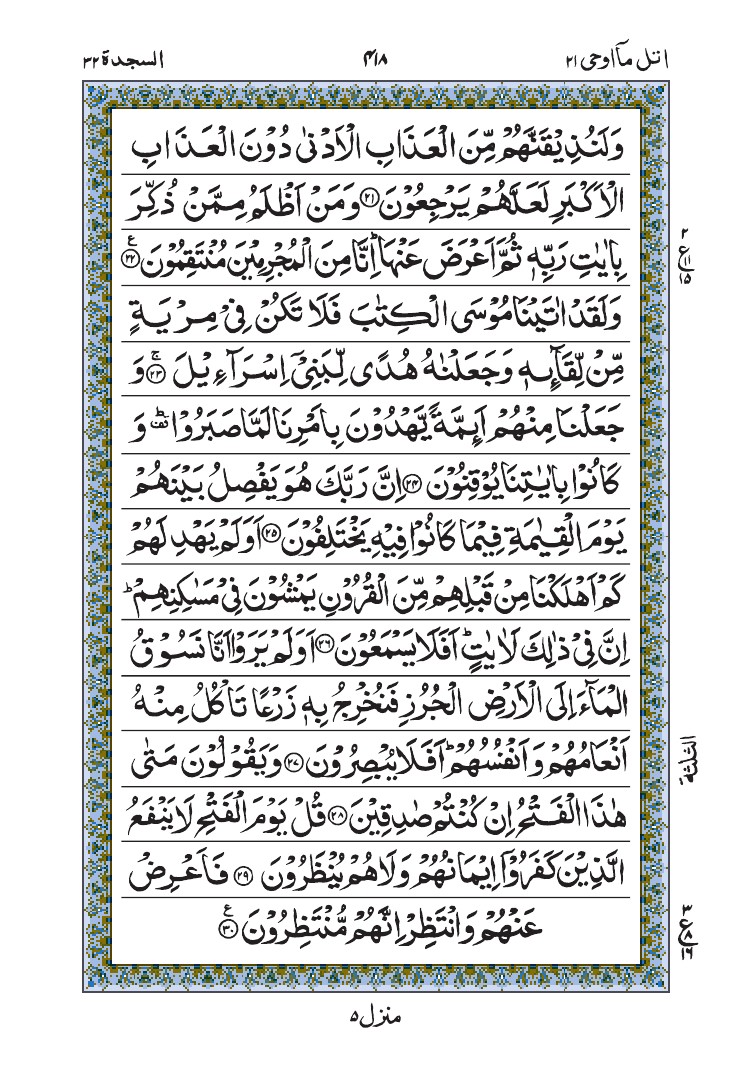 اتل مآاوحی ۲۱
۴۱۸
السجدة ۳۲
وَلَنُذِيْقَنَّهُمْ مِّنَ الْعَذَابِ الْاَدْنٰى دُوْنَ الْعَذَابِ
الْاَكْبَرِ لَعَلَّهُمْ يَرْجِعُوْنَ ﴿۲۱﴾ وَمَنْ اَظْلَمُ مِمَّنْ ذُكِّرَ
بِاٰيٰتِ رَبِّهٖ ثُمَّ اَعْرَضَ عَنْهَا ؕ اِنَّا مِنَ الْمُجْرِمِيْنَ مُنْتَقِمُوْنَ ﴿۲۲﴾ ع
وَلَقَدْ اٰتَيْنَا مُوْسَى الْكِتٰبَ فَلَا تَكُنْ فِيْ مِرْيَةٍ
مِّنْ لِّقَآئِهٖ وَجَعَلْنٰهُ هُدًى لِّبَنِيْۤ اِسْرَآءِيْلَ ۚ ﴿۲۳﴾ وَ
جَعَلْنَا مِنْهُمْ اَئِمَّةً يَّهْدُوْنَ بِاَمْرِنَا لَمَّا صَبَرُوْا ؕ قف وَ
كَانُوْا بِاٰيٰتِنَا يُوْقِنُوْنَ ﴿۲۴﴾ اِنَّ رَبَّكَ هُوَ يَفْصِلُ بَيْنَهُمْ
يَوْمَ الْقِيٰمَةِ فِيْمَا كَانُوْا فِيْهِ يَخْتَلِفُوْنَ ﴿۲۵﴾ اَوَلَمْ يَهْدِ لَهُمْ
كَمْ اَهْلَكْنَا مِنْ قَبْلِهِمْ مِّنَ الْقُرُوْنِ يَمْشُوْنَ فِيْ مَسٰكِنِهِمْ ؕ
اِنَّ فِيْ ذٰلِكَ لَاٰيٰتٍ ؕ اَفَلَا يَسْمَعُوْنَ ﴿۲۶﴾ اَوَلَمْ يَرَوْا اَنَّا نَسُوْقُ
الْمَآءَ اِلَى الْاَرْضِ الْجُرُزِ فَنُخْرِجُ بِهٖ زَرْعًا تَاْكُلُ مِنْهُ
اَنْعَامُهُمْ وَاَنْفُسُهُمْ ؕ اَفَلَا يُبْصِرُوْنَ ﴿۲۷﴾ وَيَقُوْلُوْنَ مَتٰى
هٰذَا الْفَتْحُ اِنْ كُنْتُمْ صٰدِقِيْنَ ﴿۲۸﴾ قُلْ يَوْمَ الْفَتْحِ لَا يَنْفَعُ
الَّذِيْنَ كَفَرُوْۤا اِيْمَانُهُمْ وَلَا هُمْ يُنْظَرُوْنَ ﴿۲۹﴾ فَاَعْرِضْ
عَنْهُمْ وَانْتَظِرْ اِنَّهُمْ مُّنْتَظِرُوْنَ ﴿۳۰﴾ ع
۲
ع ۱۱
۱۵
الثلثة
۳
ع ۸
۱۶
منزل ۵